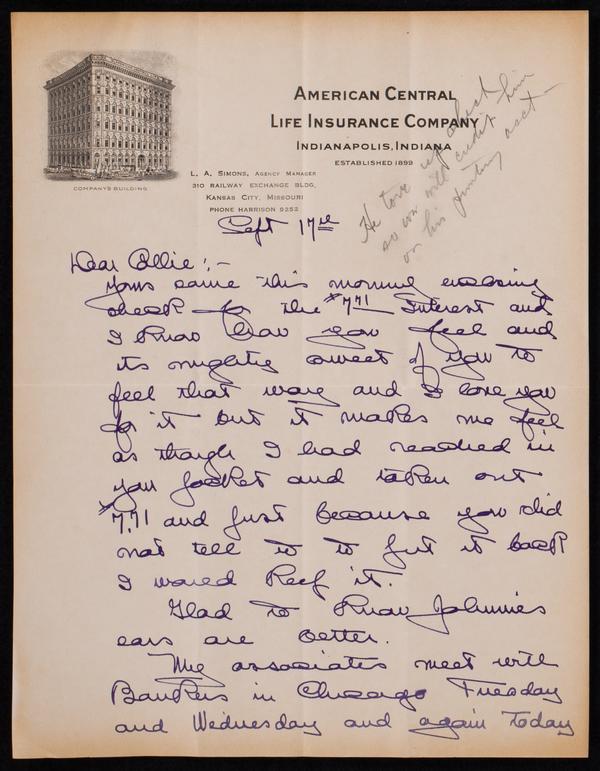 AMERICAN CENTRAL
LIFE INSURANCE COMPANY
INDIANAPOLIS, INDIANA
ESTABLISHED 1899
COMPANY'S BUILDING
L. A. SIMONS, AGENCY MANAGER
310 RAILWAY EXCHANGE BLDG.
KANSAS CITY, MISSOURI
PHONE HARRISON 9252
He tore up check
so we will credit him
on his hunting acct—
Sept 17th
Dear Ollie:-
Yours came this morning enclosing
check for the $7.71 Interest and
I know how you feel and
its mighty sweet of you to
feel that way and I love you
for it but it makes me feel
as though I had reached in
your pocket and taken out
$7.71 and just because you did
not tell to to put it back
I would keep it.
Glad to know Johnnies
ears are better.
My associates meet with
Bankers in Chicago Tuesday
and Wednesday and again today